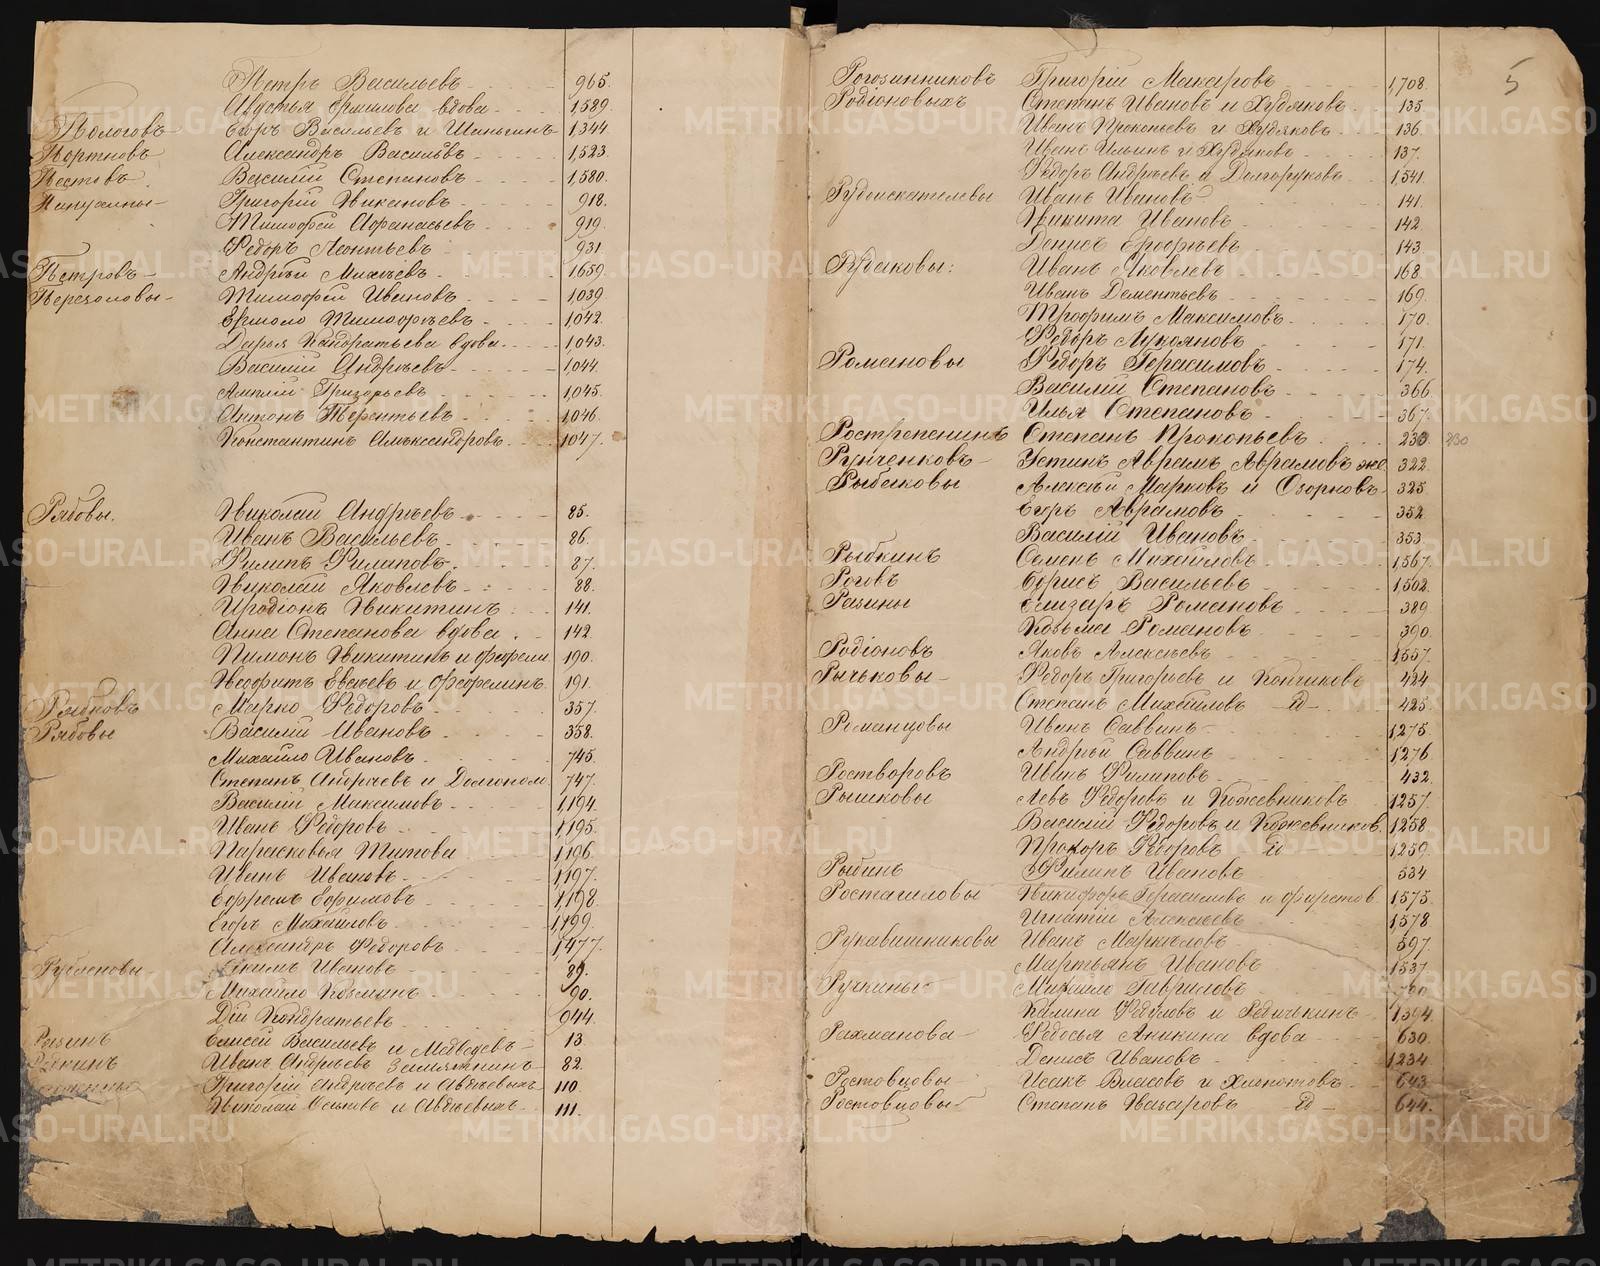 Петръ Васильевъ 965.
Авдотья Ермилова вдова 1589.
Пологовъ Егоръ Васильевъ и Шаньгинъ 1344
Портновъ Александръ Васильвъ 1523.
Пестовъ Василій Степановъ 1580.
Григорій Никановъ 918.
Тимофей Афанасьевъ 919.
Федоръ Леонтьевъ 931
Петровъ Андрей Михѣевъ 1659.
Тимофей Ивановъ 1039.
Ермоло Тимофѣевъ 1042.
Дарья Кандратьева вдова 1043.
Василій Андрѣевъ 1044.
Григорьевъ 1045.
Антонъ Терентьевъ 1046.
Константинъ Алѣксандровъ 1047.
Рябовы. Николай Андрѣевъ 85.
Иванъ Васильевъ 86.
Филипъ Филиповъ. 87.
Николай Яковлевъ 88.
Иродіонъ Никитинъ 141.
Анна Степанова вдова. 142.
Пимонъ Никитинъ и 190.
Неофитъ Евсѣевъ и Феофелинъ 191.
Рябковъ Марко Федоровъ 357.
Рябовы Василій Ивановъ 358.
Михайло Ивановъ 745.
Степанъ Андрѣевъ и 747.
Василій Максимовъ 1194.
Иванъ Федоровъ 1195.
Парасковья Титова 1196
Иванъ Ивановъ 1197.
Ефремъ Ефимовъ 1198.
Егоръ Михайловъ 1199.
Александръ Федоровъ 1477.
Екимъ Ивановъ 89.
Михайло Козминъ 90.
Дій Кондратьевъ 944.
Разинъ Елисей Васильевъ и Медведевъ 13
Иванъ Андрѣевъ Землянинъ 82.
Григорій Андрѣевъ и Авдѣевыхъ 110.
Николай и Авдѣевыхъ 111.
5
Рогозинниковъ Григорій Макаровъ 1708.
Родіоновыхъ Степанъ Ивановъ и Худяковъ 135
Иванъ Прокопьевъ и Худяковъ 136.
Иванъ Ильинъ и Худяковъ 137.
Федоръ Андрѣевъ и Долгоруковъ 1541.
Рудоискателевы Иванъ Ивановъ 141.
Никита Ивановъ 142
Денисъ Ерофѣевъ 143
Рудаковы: Иванъ Яковлевъ 168.
Иванъ Дементьевъ 169.
Трофимъ Максимовъ 170.
Федоръ Лукояновъ 171.
Романовы Федоръ Герасимовъ 174.
Василій Степановъ 366
Илья Степановъ 367.
Растрепенинъ Степанъ Прокопьевъ 230. 230
Рунченковъ Устинъ Аврамъ Аврамовъ же 322.
Рыбаковы Алексѣй Марковъ и Озорновъ 325
Егоръ Аврамовъ 352
Василій Ивановъ 353.
Рыбкинъ Семенъ Михайловъ 1567.
Роговъ Борисъ Васильевъ 1502.
Разины Елизаръ Романовъ 389
Козьма Романовъ 390.
Родіоновъ Яковъ Алексѣевъ 1557.
Рычьковы Федоръ Григорьевъ и Копчиковъ 424
Степанъ Михайловъ 425.
Романцовы Иванъ Саввинъ 1275.
Андрѣй Саввинъ 1276.
Растворовъ Иванъ Филиповъ 432
Рышковы Левъ Федоровъ и Кожевниковъ 1257.
Василій Федоровъ и Кожевниковъ. 1258
Прохоръ Федоровъ 1259.
Рыбинъ Филипъ Ивановъ 534
Ростагиловы Никифоръ Герасимовъ и 1575.
Игнатій Алексѣевъ 1578.
Рукавишниковы Иванъ Маркѣловъ 597.
Мартьянъ Ивановъ 1537
Ручкины Михайло Гавриловъ
Калина Федуловъ и 1594.
Рахманова Федосья Аникина вдова 630.
Денисъ Ивановъ 1234
Ростовцовы Исакъ Власовъ и Хлопотовъ 643.
Ростовцовы Степанъ Назаровъ 644.
METRIKI.GASO-URAL.RU